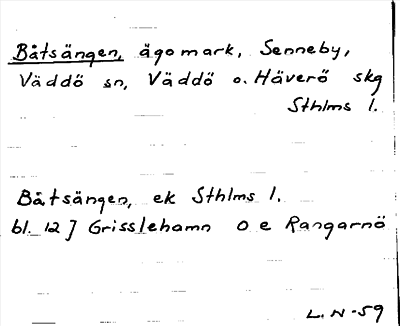 Båtsängen, ägomark, Senneby,
Väddö sn, Väddö o. Häverö skg
Sthlms l.
Båtsängen, ek Sthlms l.
bl. 12] Grisslehamn O e Rangarnö
L. N -59